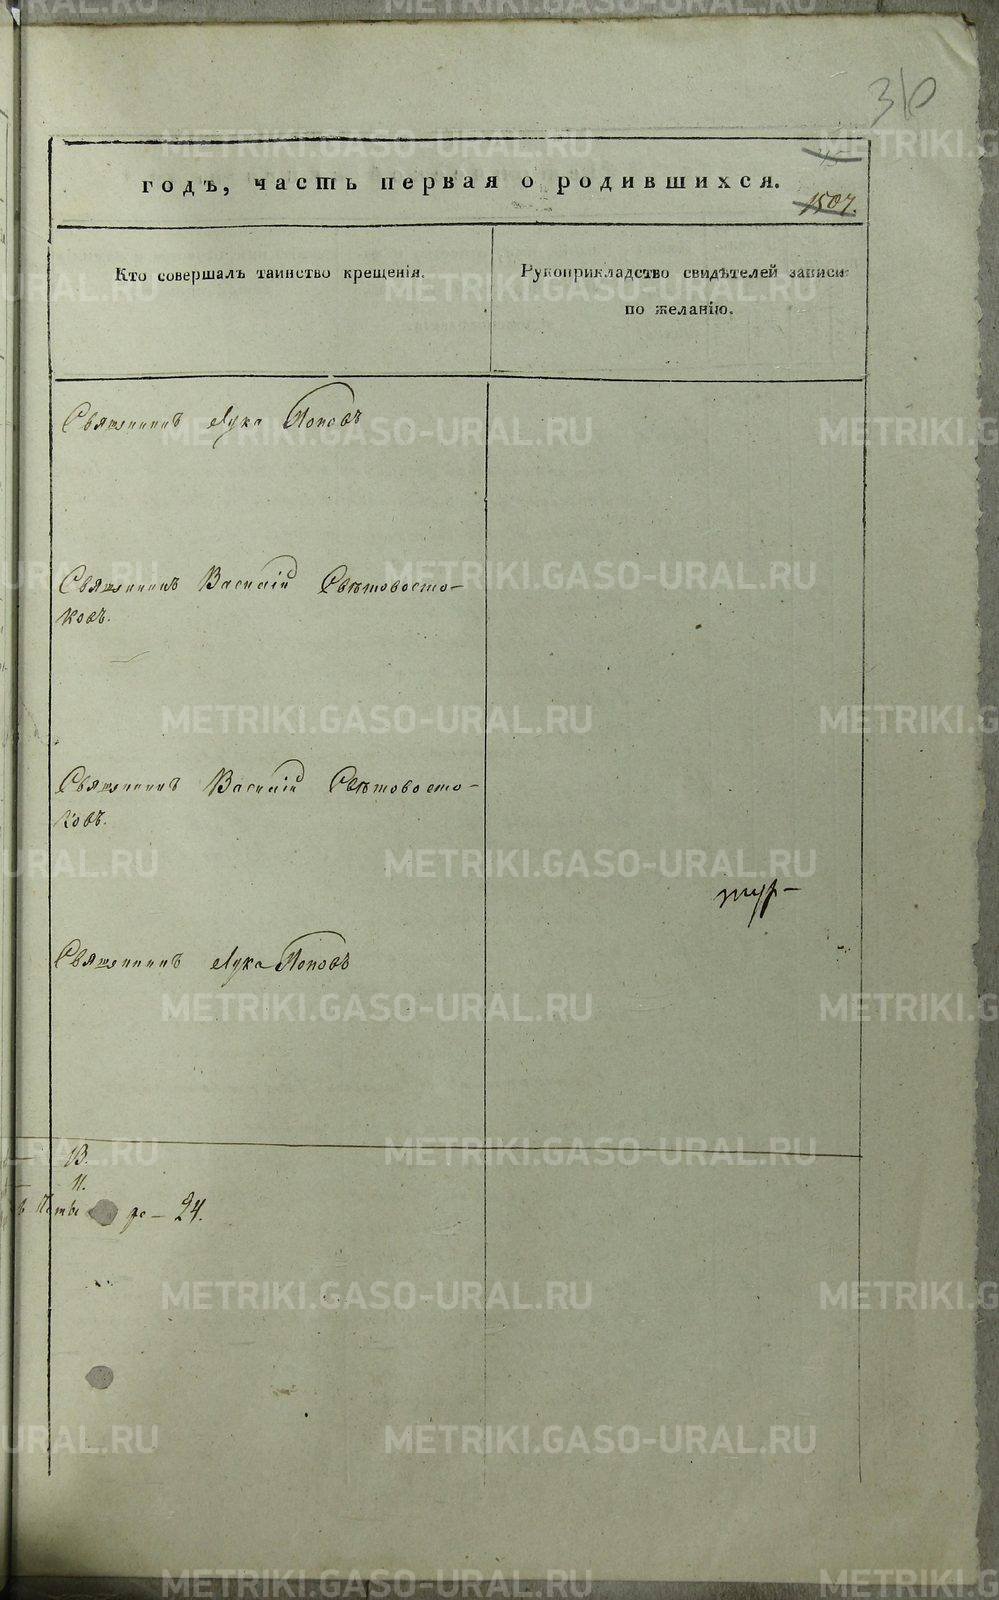 310
годѣ, часть первая о родившихся.
1507.
Кто совершалъ таинство крещенія.
Рукоприкладство свидѣтелей записи
по желанію.
Священникъ Лука Поповъ
Священникъ Василій Свѣтовосто-
ковъ.
Священникъ Василій Свѣтовосто-
ковъ.
Священникъ Лука Поповъ
13.
11.
24.
METRIKI.GASO-URAL.RU